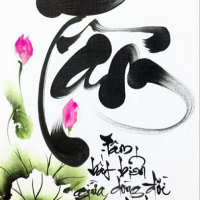 Tâm
Tâm
bất biến
giữa dòng đời